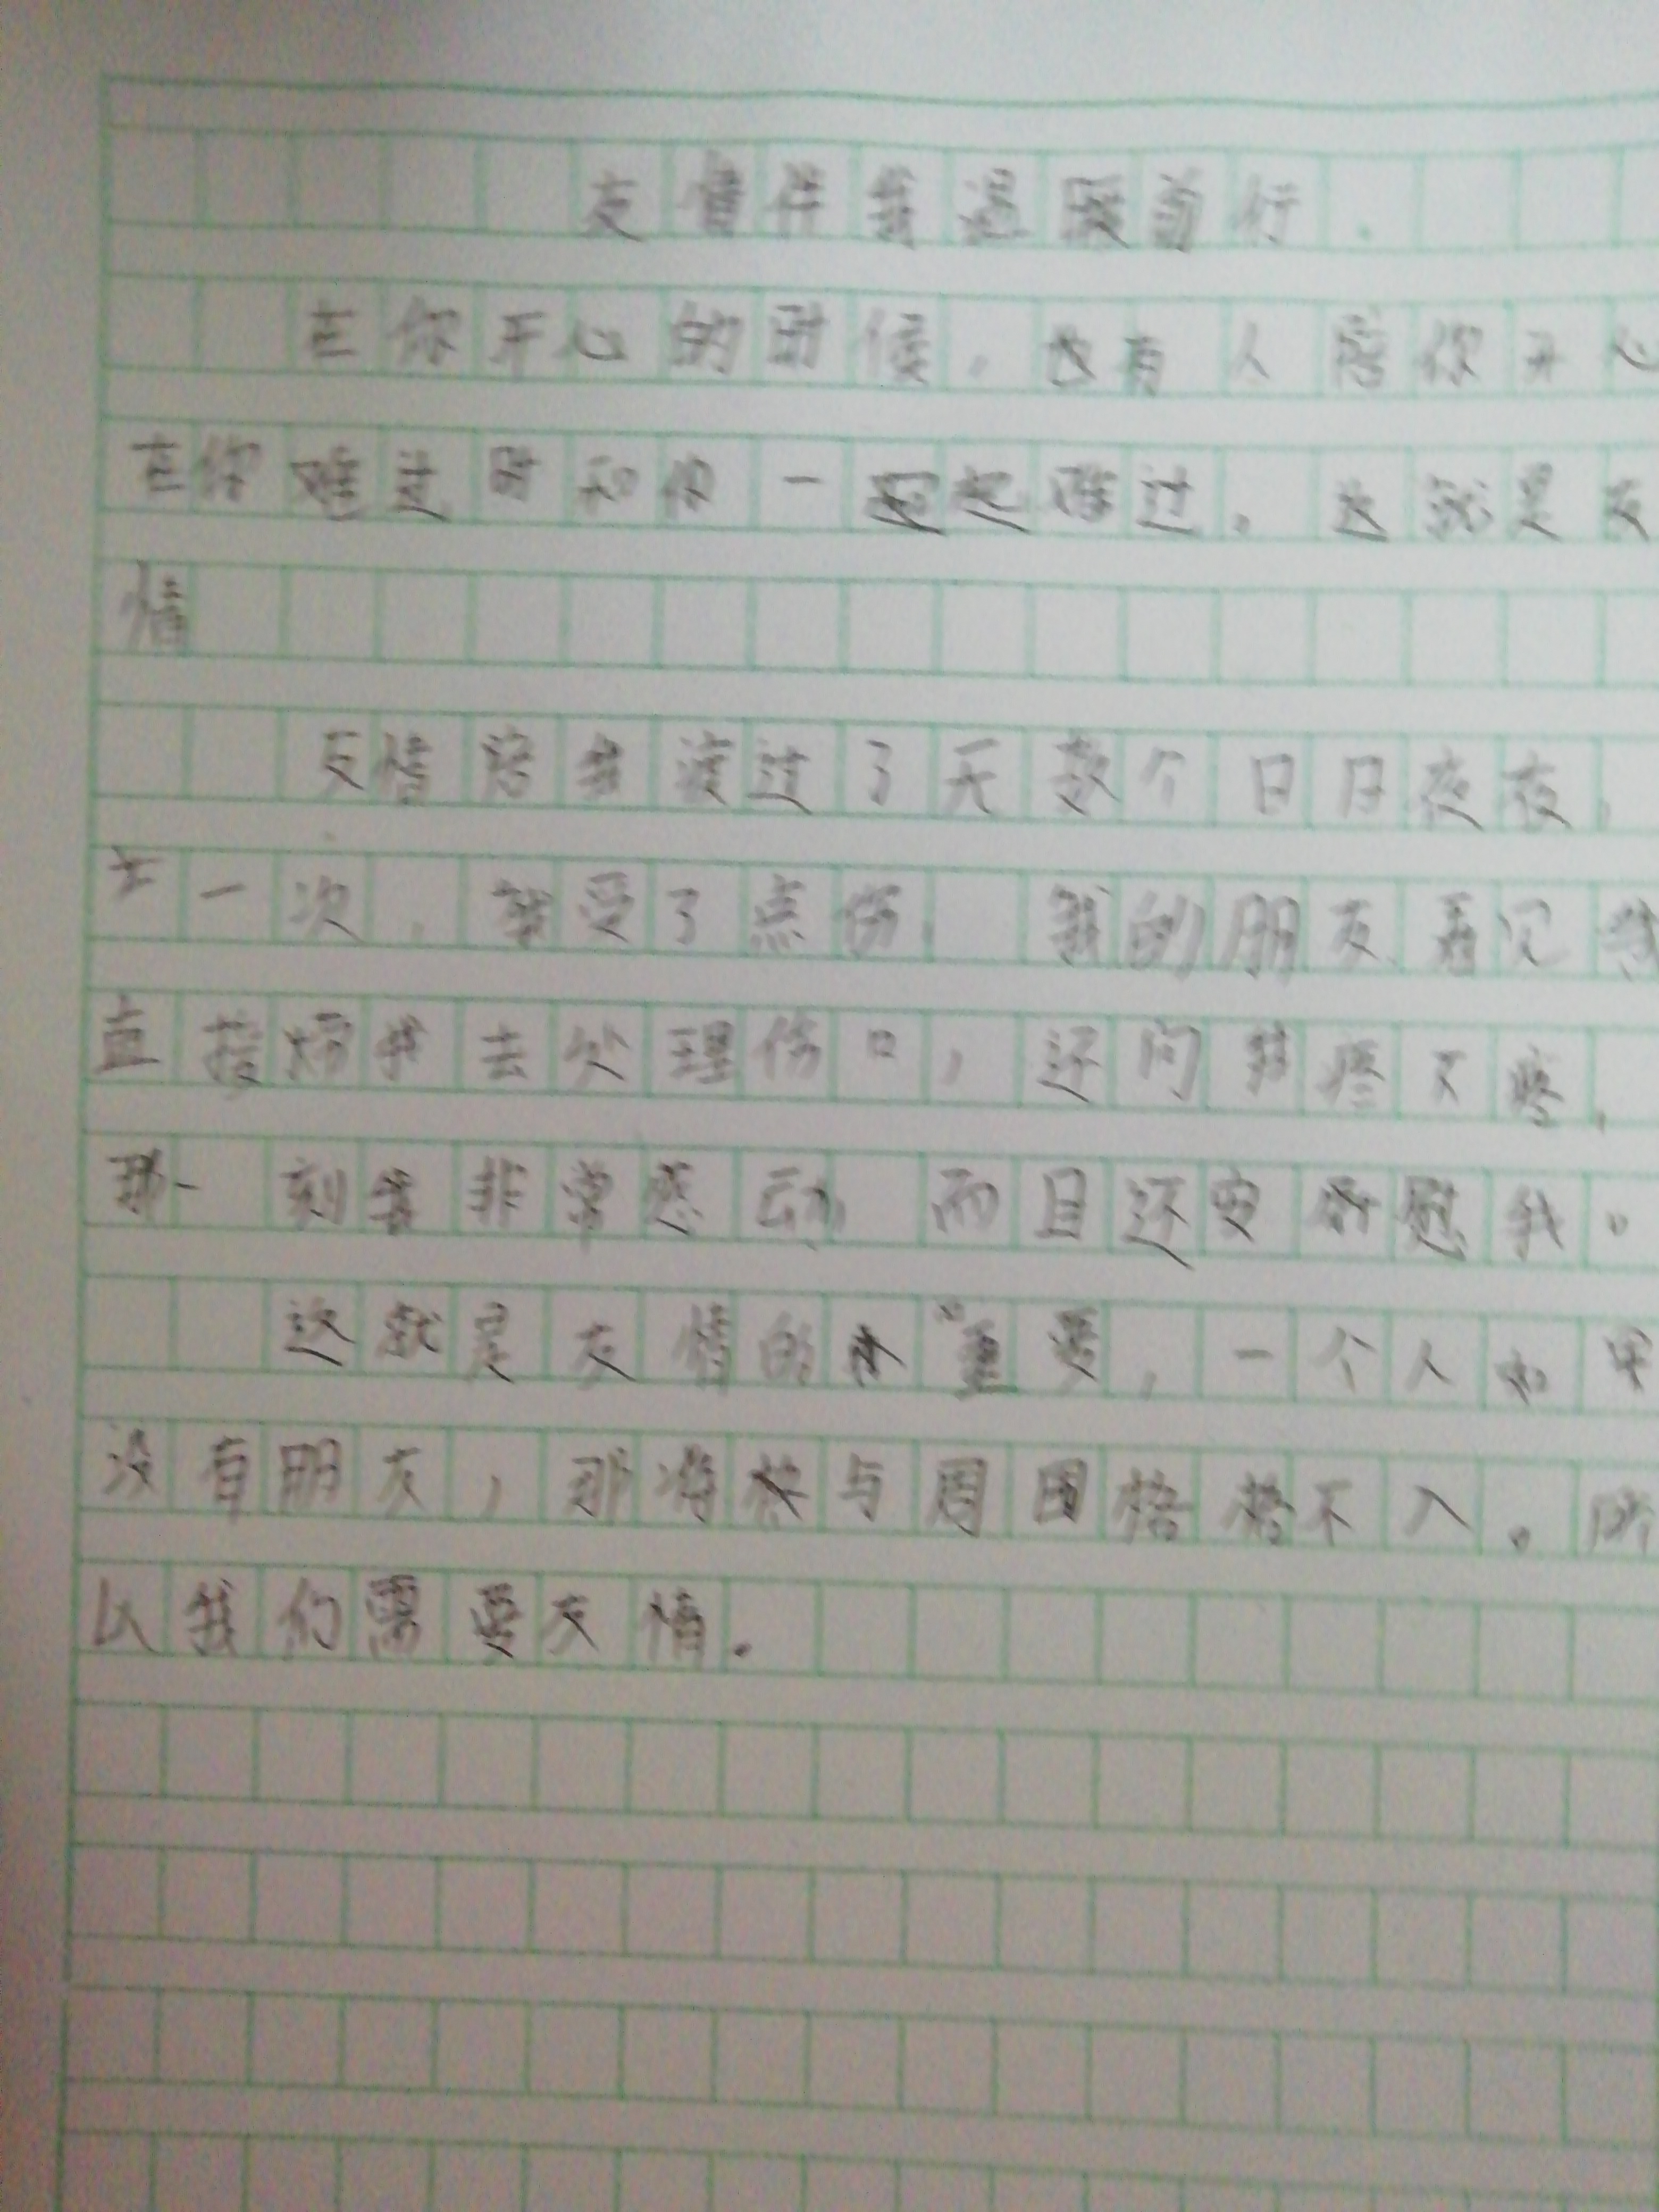 友情伴我温暖前行.
在你开心的时候，也有人陪你开心
在你难过时和你一起难过。这就是友
情
友情陪我渡过了无数个日日夜夜，
一次，我受了点伤，我的朋友看见我
直接 我去处理伤口，还问我疼不疼，
那一刻我非常感动，而且还安慰我。
这就是友情的重要，一个人如果
没有朋友，那将 与周围格格不入。所
以我们需要友情。